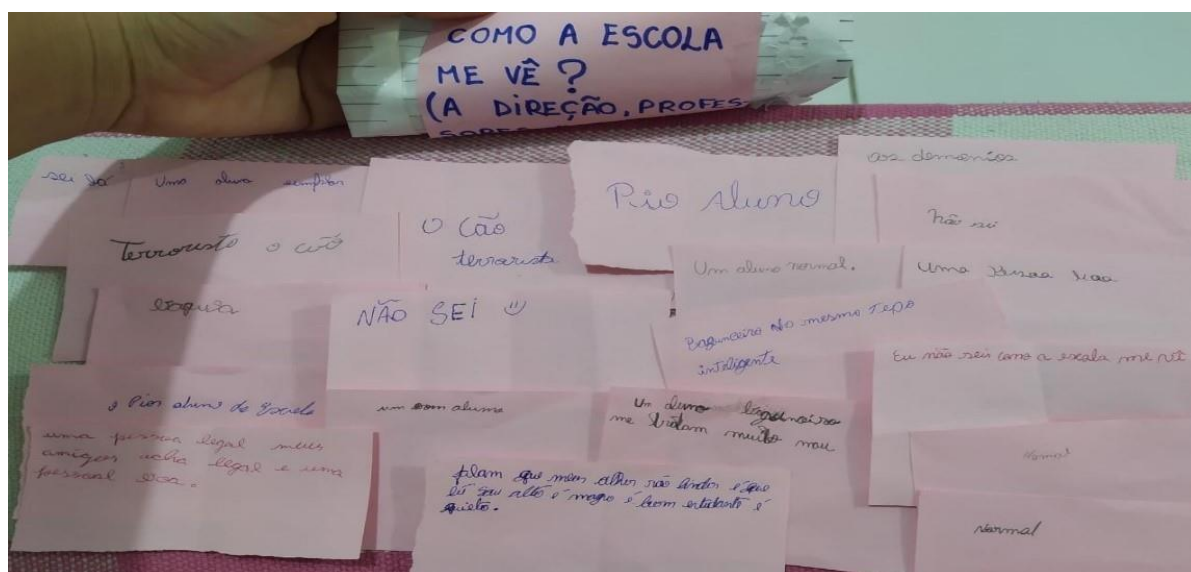 COMO A ESCOLA
ME VÊ ?
(A DIREÇÃO, PROFES
SORES
sei lá
Uma aluna
aos demonios
Pio Aluno
O Cão
terrarista
Terrorista o cão
não sei
Um aluno normal.
uma
NÃO SEI
Bagunceiro mesmo tepo
inteligente
Eu não sei como a escola me vê
o Pior aluno do Escola
um bom aluno
Un aluno
me tratam muito mau
uma pessoa legal meus
amigos acha legal e uma
pessoal
falam que meus olhos são lindos e que
eu sou alto é magro é bom estudante é
quieto.
Normal
Normal